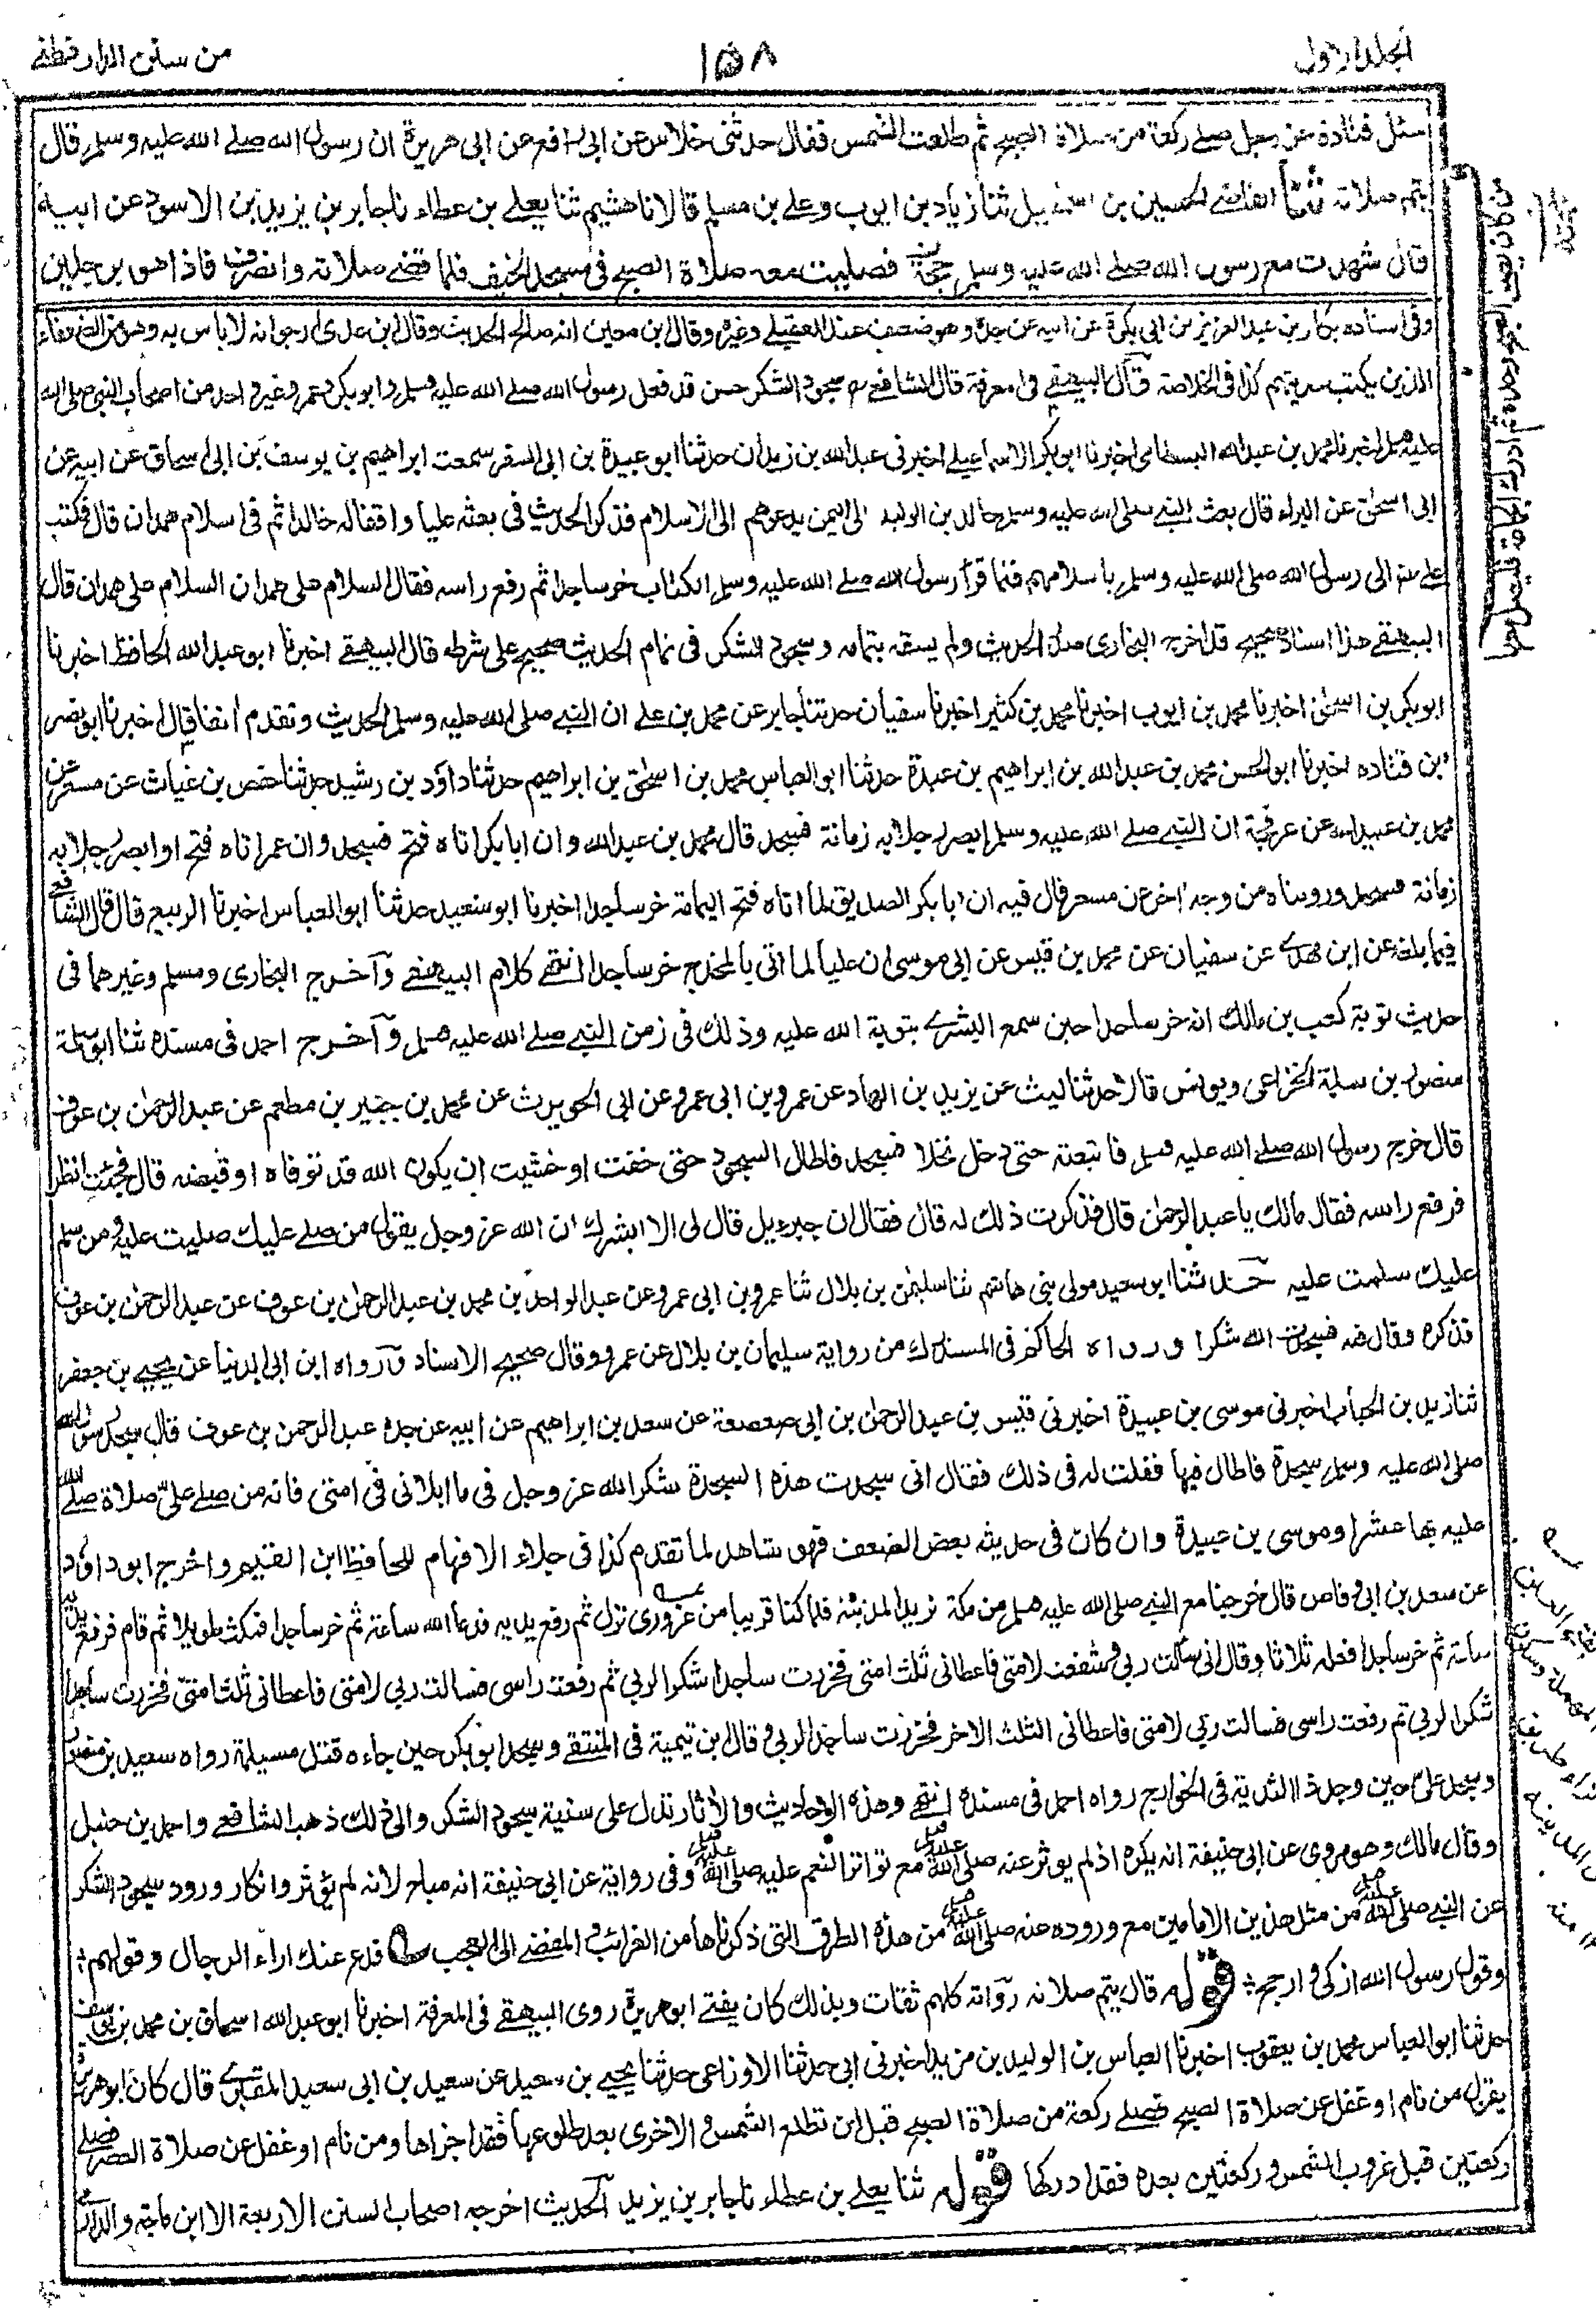 الجلد الاول
١٥٨
من سنن الدارقطنے
سئل قتادة عن رجل صلے ركعة من صلاة الصبح ثم طلعت الشمس فقال حدثنى خلاس عن ابى رافع عن ابى هريرة ان رسول الله صلے الله عليه وسلم قال
يتم صلاته ثنا القاضے الحسين بن اسمعيل ثنا زياد بن ايوب وعلے بن مسلم قالا نا هشيم ثنا يعلے بن عطاء نا جابر بن يزيد بن الاسود عن ابيه
قال شهدت مع رسول الله صلے الله عليه وسلم حجته فصليت معه صلاة الصبح فى مسجد الخيف فلما قضے صلاته وانصرف فاذا هو برجلين
وفى اسناده بكار بن عبد العزيز بن ابى بكرة عن ابيه عن جده وهو ضعيف عند العقيلے وغيره وقال ابن معين انه صالح الحديث وقال ابن عدى ارجو انه لا باس به وهو من الضعفاء
الذين يكتب حديثهم كذا فى الخلاصة وقال البيهقے فى المعرفة قال الشافعے سجود الشكر حسن قد فعل رسول الله صلے الله عليه وسلم وابو بكر وعمر وغير واحد من اصحاب النبى صلى الله
عليه وسلم اخبرنا محمد بن عبد الله البسطامى اخبرنا ابو بكر الاسماعيلے اخبرنى عبد الله بن زيدان حدثنا ابو عبيدة بن ابى السفر سمعت ابراهيم بن يوسف بن ابى اسحاق عن ابيه عن
ابى اسحق عن البراء قال بعث النبے صلى الله عليه وسلم خالد بن الوليد الى اليمن يدعوهم الى الاسلام فذكر الحديث فى بعثه عليا واقفاله خالدا ثم فى اسلام همدان قال فكتب
على الى رسول الله صلى الله عليه وسلم باسلامهم فلما قرأ رسول الله صلے الله عليه وسلم الكتاب خر ساجدا ثم رفع راسه فقال السلام على همدان السلام على همدان قال
البيهقے هذا اسناد صحيح قد اخرج البخارى صدر الحديث ولم يسقه بتمامه وسجود الشكر فى تمام الحديث صحيح على شرطه قال البيهقے اخبرنا ابو عبد الله الحافظ اخبرنا
ابو بكر بن اسحق اخبرنا محمد بن ايوب اخبرنا محمد بن كثير اخبرنا سفيان حدثنا جابر عن محمد بن على ان النبے صلى الله عليه وسلم الحديث وتقدم انفا قال اخبرنا ابو نصر
بن قتاده اخبرنا ابو الحسن محمد بن عبد الله بن ابراهيم بن عبدة حدثنا ابو العباس محمد بن اسحق بن ابراهيم حدثنا داؤد بن رشيد حدثنا حفص بن غياث عن مسعر عن
محمد بن عبيد الله عن عرفجة ان النبے صلے الله عليه وسلم ابصر رجلا به زمانة فسجد قال محمد بن عبد الله وان ابا بكر اتاه فتح فسجد وان عمر اتاه فتح او ابصر رجلا به
زمانة فسجد وروينا من وجه اخر عن مسعر قال فيه ان ابا بكر الصديق لما اتاه فتح اليمامة خر ساجدا اخبرنا ابو سعيد حدثنا ابو العباس اخبرنا الربيع قال قال الشافعے
فيما بلغه عن ابن مهدے عن سفيان عن محمد بن قيس عن ابى موسى ان عليا لما اتى بالمخدج خر ساجدا انتهى كلام البيهقے وآخرج البخارى ومسلم وغيرهما فى
حديث توبة كعب بن مالك انه خر ساجدا حين سمع البشرے بتوبة الله عليه وذلك فى زمن النبے صلے الله عليه وسلم وآخرج احمد فى مسنده ثنا ابو سلمة
منصور بن سلمة الخزاعى ويونس قالا حدثنا ليث عن يزيد بن الهاد عن عمرو بن ابى عمرو عن ابى الحويرث عن محمد بن جبير بن مطعم عن عبد الرحمن بن عوف
قال خرج رسول الله صلے الله عليه وسلم فاتبعته حتى دخل نخلا فسجد فاطال السجود حتى خفت او خشيت ان يكون الله قد توفاه او قبضه قال فجئت انظر
فرفع راسه فقال مالك يا عبد الرحمن قال فذكرت ذلك له قال فقال ان جبرئيل قال لى الا ابشرك ان الله عز وجل يقول من صلے عليك صليت عليه ومن سلم
عليك سلمت عليه حدثنا ابو سعيد مولى بنى هاشم ثنا سليمن بن بلال ثنا عمرو بن ابى عمرو عن عبد الواحد بن محمد بن عبد الرحمن بن عوف عن عبد الرحمن بن عوف
فذكره وقال فيه فسجدت لله شكرا ورواه الحاكم فى المستدرك من رواية سليمان بن بلال عن عمرو وقال صحيح الاسناد وآرواه ابن ابى الدنيا عن يحيے بن جعفر
ثنا زيد بن الحباب اخبرنى موسى بن عبيدة اخبرنى قيس بن عبد الرحمن بن ابى صعصعة عن سعد بن ابراهيم عن ابيه عن جده عبد الرحمن بن عوف قال سجد رسول الله
صلى الله عليه وسلم سجدة فاطال فيها فقلت له فى ذلك فقال انى سجدت هذه السجدة شكرا لله عز وجل فى ما ابلانى فى امتى فانه من صلے علىّ صلاة صلے الله
عليه بها عشرا وموسى بن عبيدة وان كان فى حديثه بعض الضعف فهو شاهد لما تقدم كذا فى جلاء الافهام للحافظ ابن القيم واخرج ابو داؤد
عن سعد بن ابى وقاص قال خرجنا مع النبے صلى الله عليه وسلم من مكة نريد المدينة فلما كنا قريبا من عزورى نزل ثم رفع يديه فدعا الله ساعة ثم خر ساجدا فمكث طويلا ثم قام فرفع يديه
ساعة ثم خر ساجدا فعله ثلاثا وقال انى سألت ربى وشفعت لامتى فاعطانى ثلث امتى فخررت ساجدا شكرا لربى ثم رفعت راسى فسالت ربى لامتى فاعطانى ثلث امتى فخررت ساجدا
شكرا لربى ثم رفعت راسى فسالت ربى لامتى فاعطانى الثلث الاخر فخررت ساجدا لربى وقال ابن تيمية فى المنتقے وسجد ابو بكر حين جاءه قتل مسيلمة رواه سعيد بن منصور
وسجد علىّ حين وجد ذا الثدية فى الخوارج رواه احمد فى مسنده انتهے وهذه الاحاديث والاثار تدل على سنية سجود الشكر والى ذلك ذهب الشافعے واحمد بن حنبل
وقال مالك وهو مروى عن ابى حنيفة انه يكره اذ لم يوثر عنه صلى الله عليه وسلم مع تواتر النعم عليه صلى الله عليه وسلم وفى رواية عن ابى حنيفة انه مباح لانه لم يؤثر وانكار ورود سجود الشكر
عن النبے صلى الله عليه وسلم من مثل هذين الامامين مع وروده عنه صلى الله عليه وسلم من هذه الطرق التى ذكرناها من الغرائب المفضے الى العجب فدع عنك اراء الرجال وقولهم :
وقول رسول الله ازكى وارجح : قوله قال يتم صلاته رواته كلهم ثقات وبذلك كان يفتے ابو هريرة روى البيهقے فى المعرفة اخبرنا ابو عبد الله اسحاق بن محمد بن يوسف
حدثنا ابو العباس محمد بن يعقوب اخبرنا العباس بن الوليد بن مزيد اخبرنى ابى حدثنا الاوزاعى حدثنا يحيے بن سعيد عن سعيد بن ابى سعيد المقبرے قال كان ابو هريرة
يقول من نام او غفل عن صلاة الصبح فصلے ركعة من صلاة الصبح قبل ان تطلع الشمس والاخرى بعد طلوعها فقد اجزاها ومن نام او غفل عن صلاة العصر فصلے
ركعتين قبل غروب الشمس وركعتين بعده فقد ادركها قوله ثنا يعلے بن عطاء نا جابر بن يزيد آلحديث اخرجه اصحاب السنن الاربعة الا ابن ماجة والدار